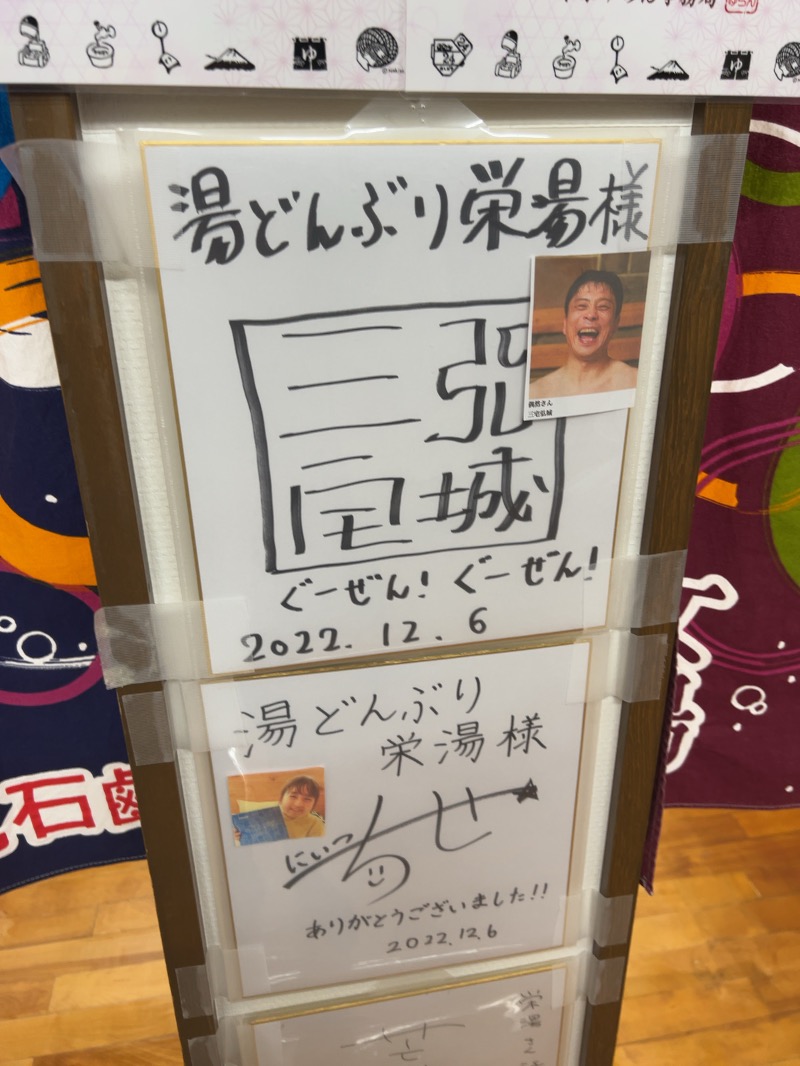 ゆ
ゆ
湯どんぶり栄湯様
三宅
弘城
偶然さん
三宅弘城
ぐーぜん! ぐーぜん!
2022.12.6
湯どんぶり
栄湯様
にいつ
ありがとうございました!!
2022.12.6
石鹸
栄湯